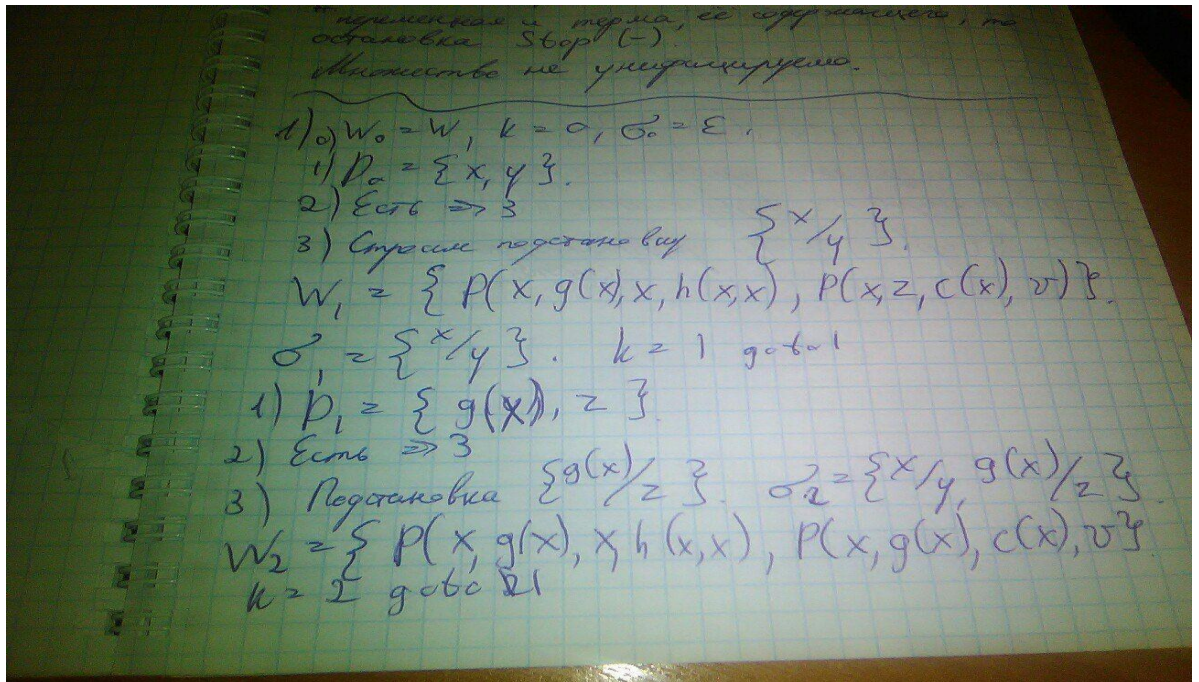 переменная и терма, её содержащего, то
остановка Stop (-).
Множество не унифицируемо.
1) 0) W₀ = W, k = 0, σ₀ = ε.
1) D₀ = {x, y}.
2) Есть => 3
3) Строим подстановку {x/y}.
W₁ = { P(x, g(x), x, h(x,x), P(x, z, c(x), v)}.
σ₁ = {x/y}. k = 1 goto 1
1) D₁ = { g(x), z }.
2) Есть => 3
3) Подстановка {g(x)/z}. σ₂ = {x/y, g(x)/z}.
W₂ = { P(x, g(x), x, h(x,x), P(x, g(x), c(x), v}
k = 2 goto 1